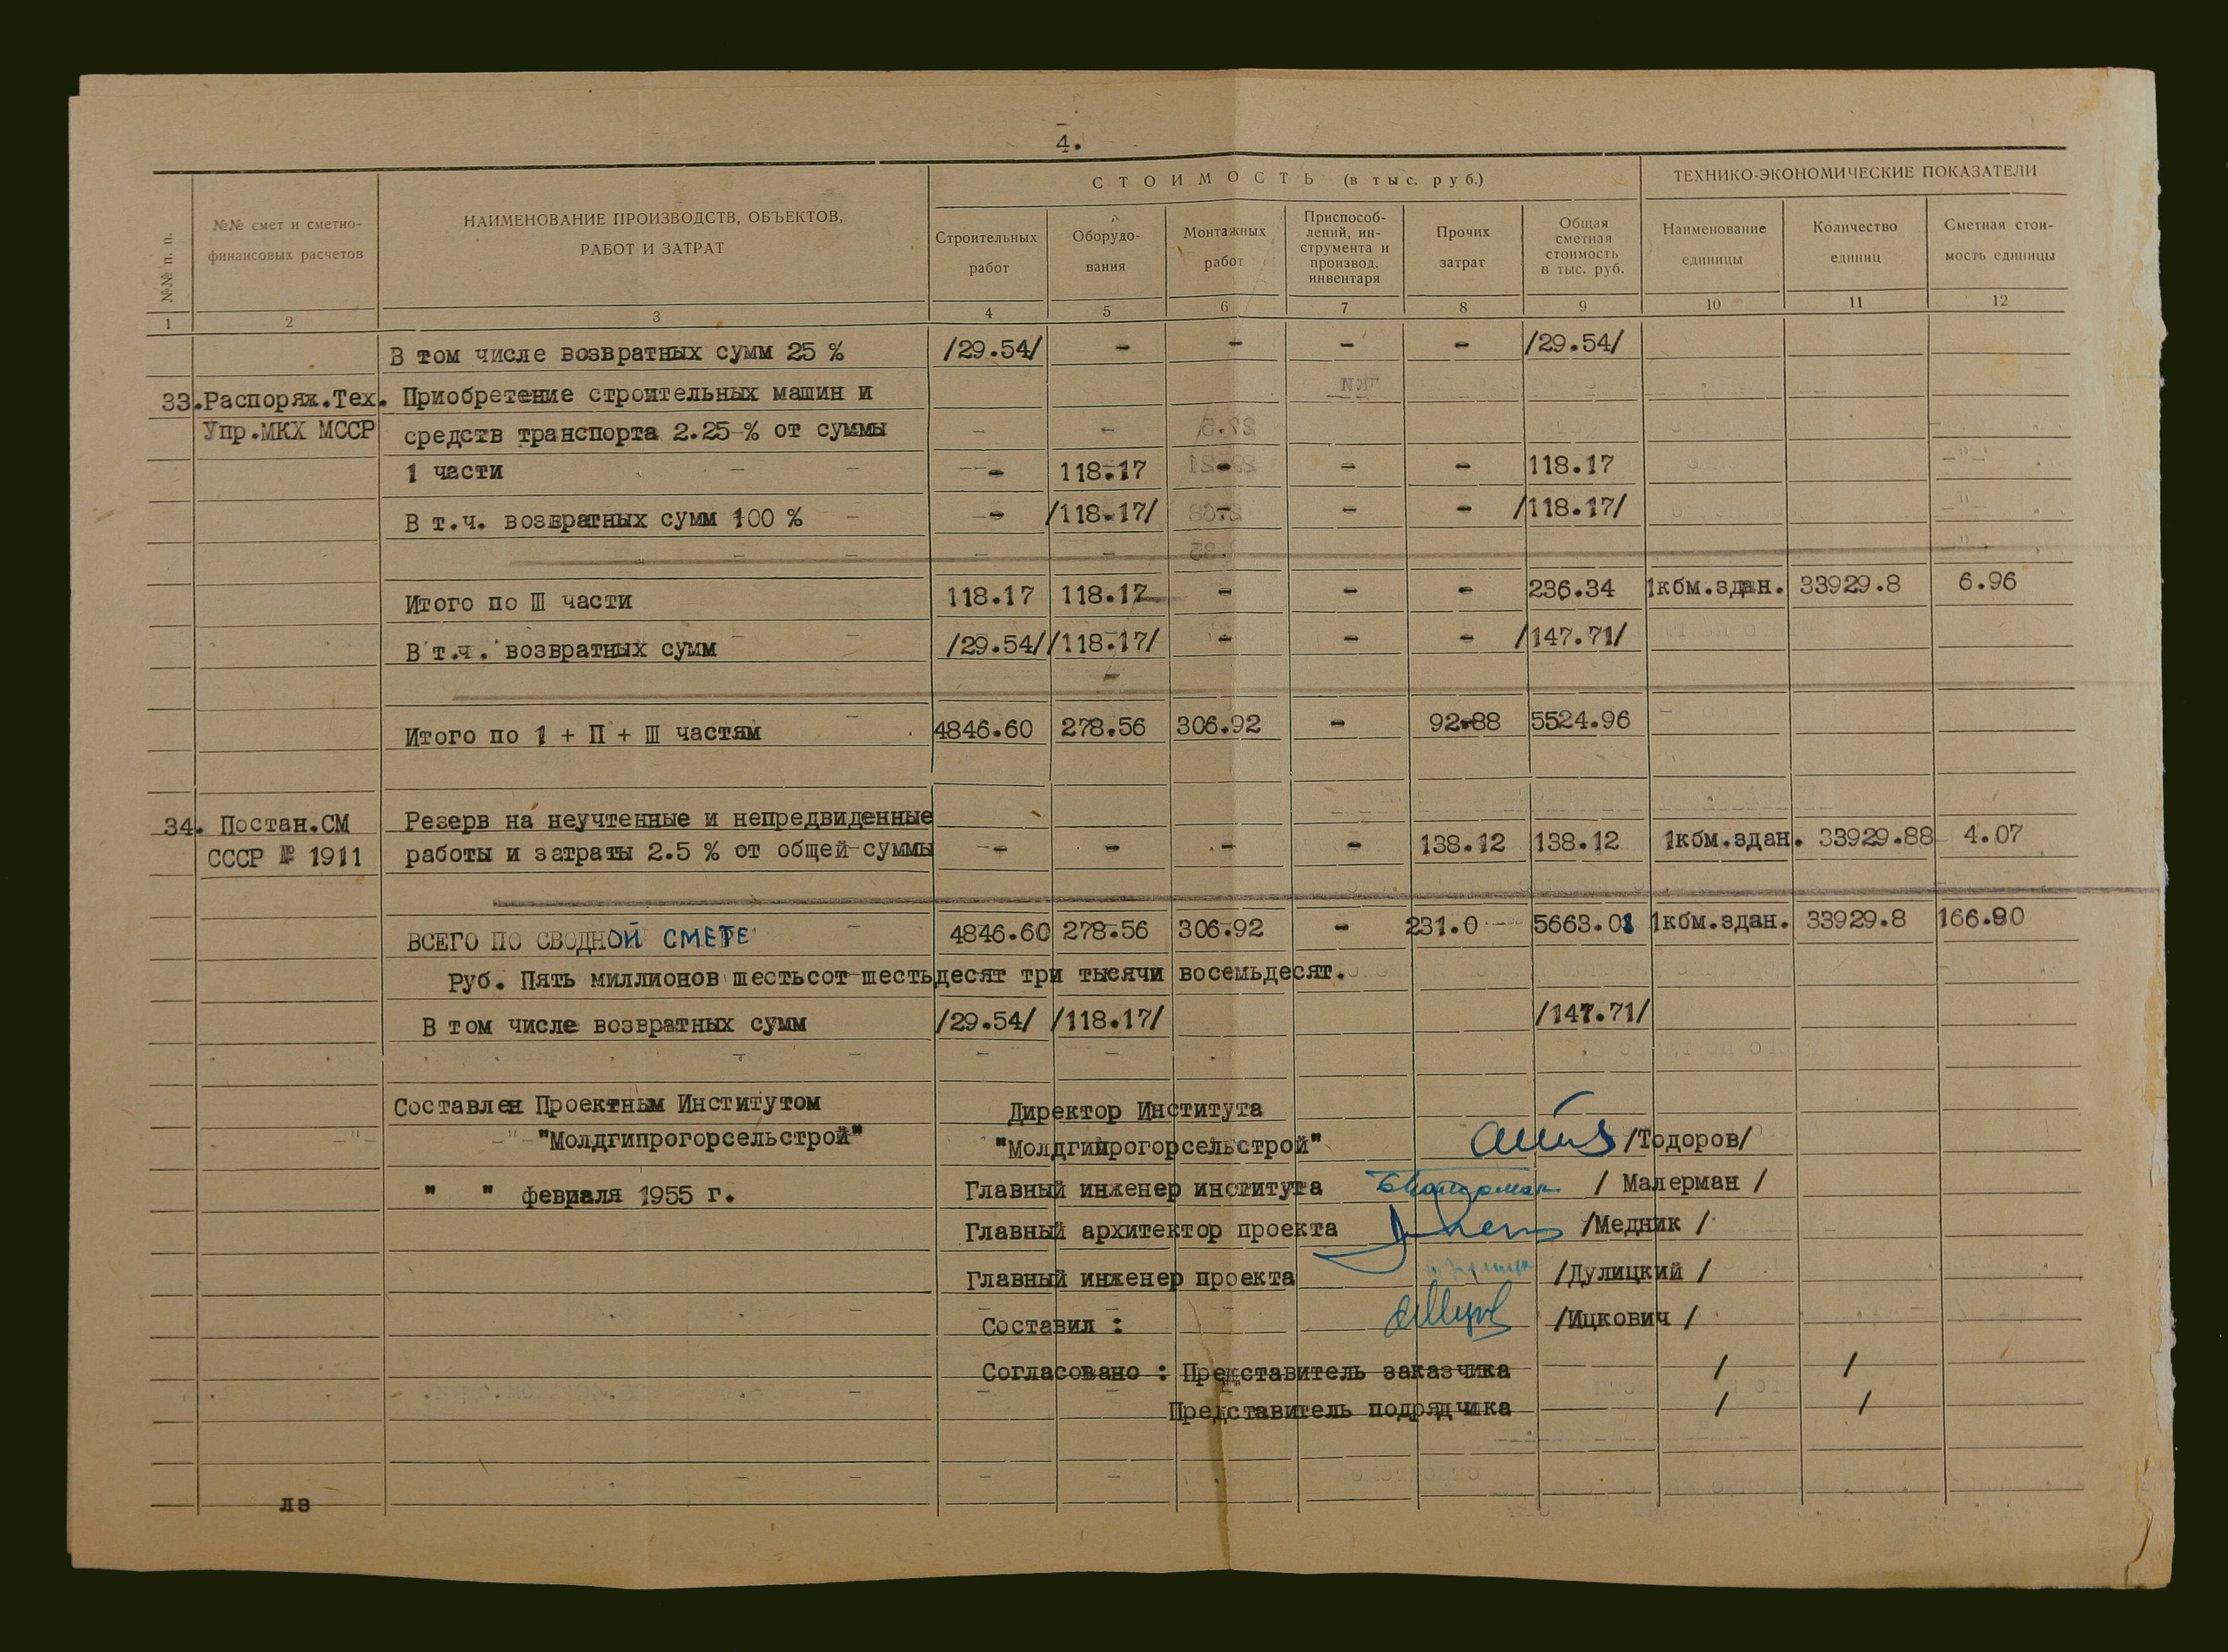 4.
№№ п. п.
№№ смет и сметно-
финансовых расчетов
НАИМЕНОВАНИЕ ПРОИЗВОДСТВ, ОБЪЕКТОВ,
РАБОТ И ЗАТРАТ
СТОИМОСТЬ (в тыс. руб.)
ТЕХНИКО-ЭКОНОМИЧЕСКИЕ ПОКАЗАТЕЛИ
Строительных
работ
Оборудо-
вания
Монтажных
работ
Приспособ-
лений, ин-
струмента и
производ.
инвентаря
Прочих
затрат
Общая
сметная
стоимость
в тыс. руб.
Наименование
единицы
Количество
единиц
Сметная стои-
мость единицы
1 2 3 4 5 6 7 8 9 10 11 12
В том числе возвратных сумм 25 % /29.54/ - - - - /29.54/
33. Распоряж.Тех. Приобретение строительных машин и
Упр.МКХ МССР средств транспорта 2.25 % от суммы
1 части - 118.17 - - - 118.17
В т.ч. возвратных сумм 100 % - /118.17/ - - - /118.17/
Итого по III части 118.17 118.17 - - - 236.34 1кбм.здан. 33929.8 6.96
В т.ч. возвратных сумм /29.54/ /118.17/ - - - /147.71/
Итого по 1 + П + III частям 4846.60 278.56 306.92 - 92.88 5524.96
34. Постан.СМ Резерв на неучтенные и непредвиденные
СССР № 1911 работы и затраты 2.5 % от общей суммы - - - - 138.12 138.12 1кбм.здан. 33929.88 4.07
ВСЕГО ПО СВОДНОЙ СМЕТЕ 4846.60 278.56 306.92 - 231.0 5663.08 1кбм.здан. 33929.8 166.90
Руб. Пять миллионов шестьсот шестьдесят три тысячи восемьдесят.
В том числе возвратных сумм /29.54/ /118.17/ /147.71/
Составлен Проектным Институтом Директор Института
"Молдгипрогорсельстрой" "Молдгипрогорсельстрой" /Тодоров/
" " февраля 1955 г. Главный инженер института / Малерман /
Главный архитектор проекта /Медник /
Главный инженер проекта /Дулицкий /
Составил : /Ицкович /
Согласовано : Представитель заказчика / /
Представитель подрядчика / /
лз